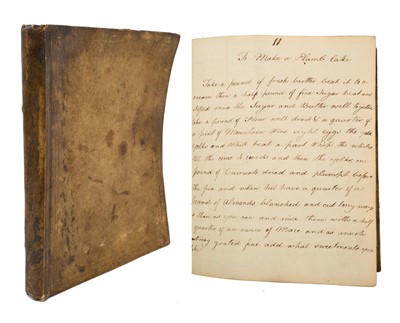 11
To Make a Plumb Cake
Take a pound of fresh butter beat it to a
cream then a half pound of fine Sugar beat and
sifted mix the Sugar and Butter well together
take a pound of flour well dried & a quarter of
a pint of Mountain Wine eight eggs the yolks
and White beat a part Whip the whites
till the and then the yolks
pound of Currants dried and plumpt before
the fire and when hot have a quarter of a
pound of Almonds blanched and cut long ways
as thin as you can and mix them with a half
quarter of an ounce of Mace and as much
Nutmeg grated fine add what sweetmeats you